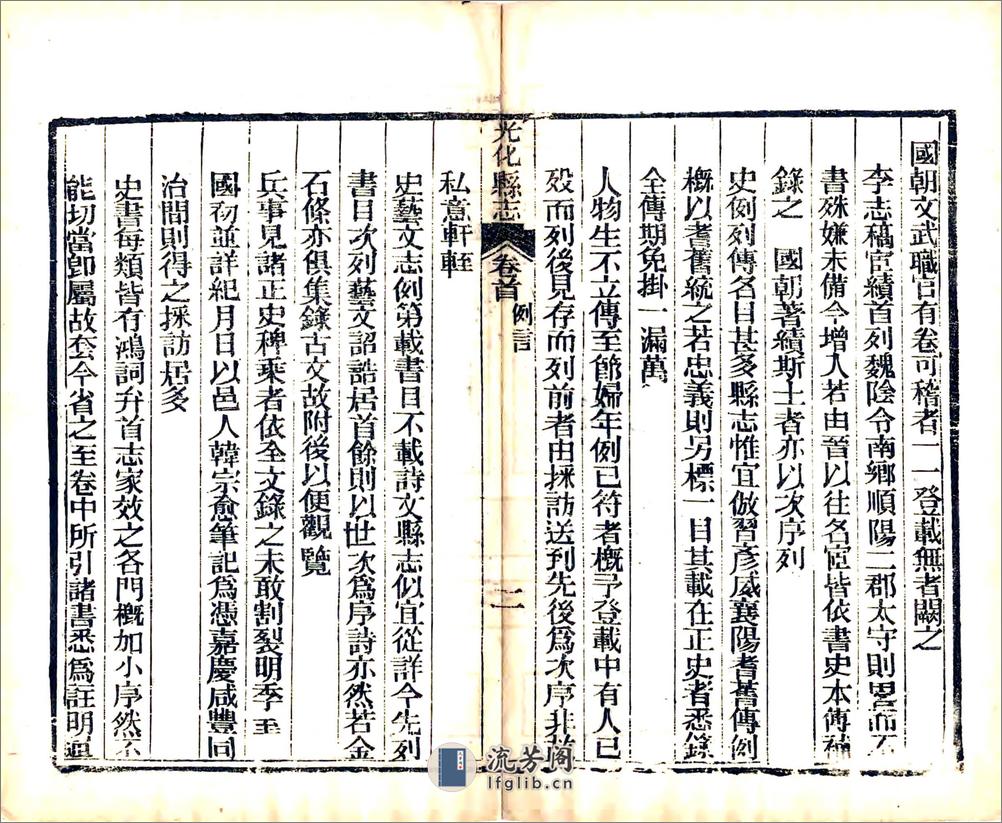 國朝文武職官有卷可稽者一一登載無者闕之
李志稿宦績首列魏陰令南鄉順陽二郡太守則畧而不
書殊嫌未備今增入若由晉以往名宦皆依書史本傳補
錄之 國朝著績斯土者亦以次序列
史例列傳名目甚多縣志惟宜倣習彥威襄陽耆舊傳例
概以耆舊統之若忠義則另標一目其載在正史者悉錄
全傳期免掛一漏萬
人物生不立傳至節婦年例已符者概予登載中有人已
歿而列後見存而列前者由採訪送到先後為次序非敢
光化縣志 卷首 例言 二
私意軒輊
史藝文志例第載書目不載詩文縣志似宜從詳今先列
書目次列藝文詔誥居首餘則以世次為序詩亦然若金
石條亦俱集錄古文故附後以便觀覽
兵事見諸正史稗乘者依全文錄之未敢割裂明季至
國初並詳紀月日以邑人韓宗愈筆記為憑嘉慶咸豐同
治間則得之採訪居多
史書每類皆有鴻詞弁首志家效之各門概加小序然不
能切當卽屬故套今省之至卷中所引諸書悉為註明道
流芳阁
lfglib.cn